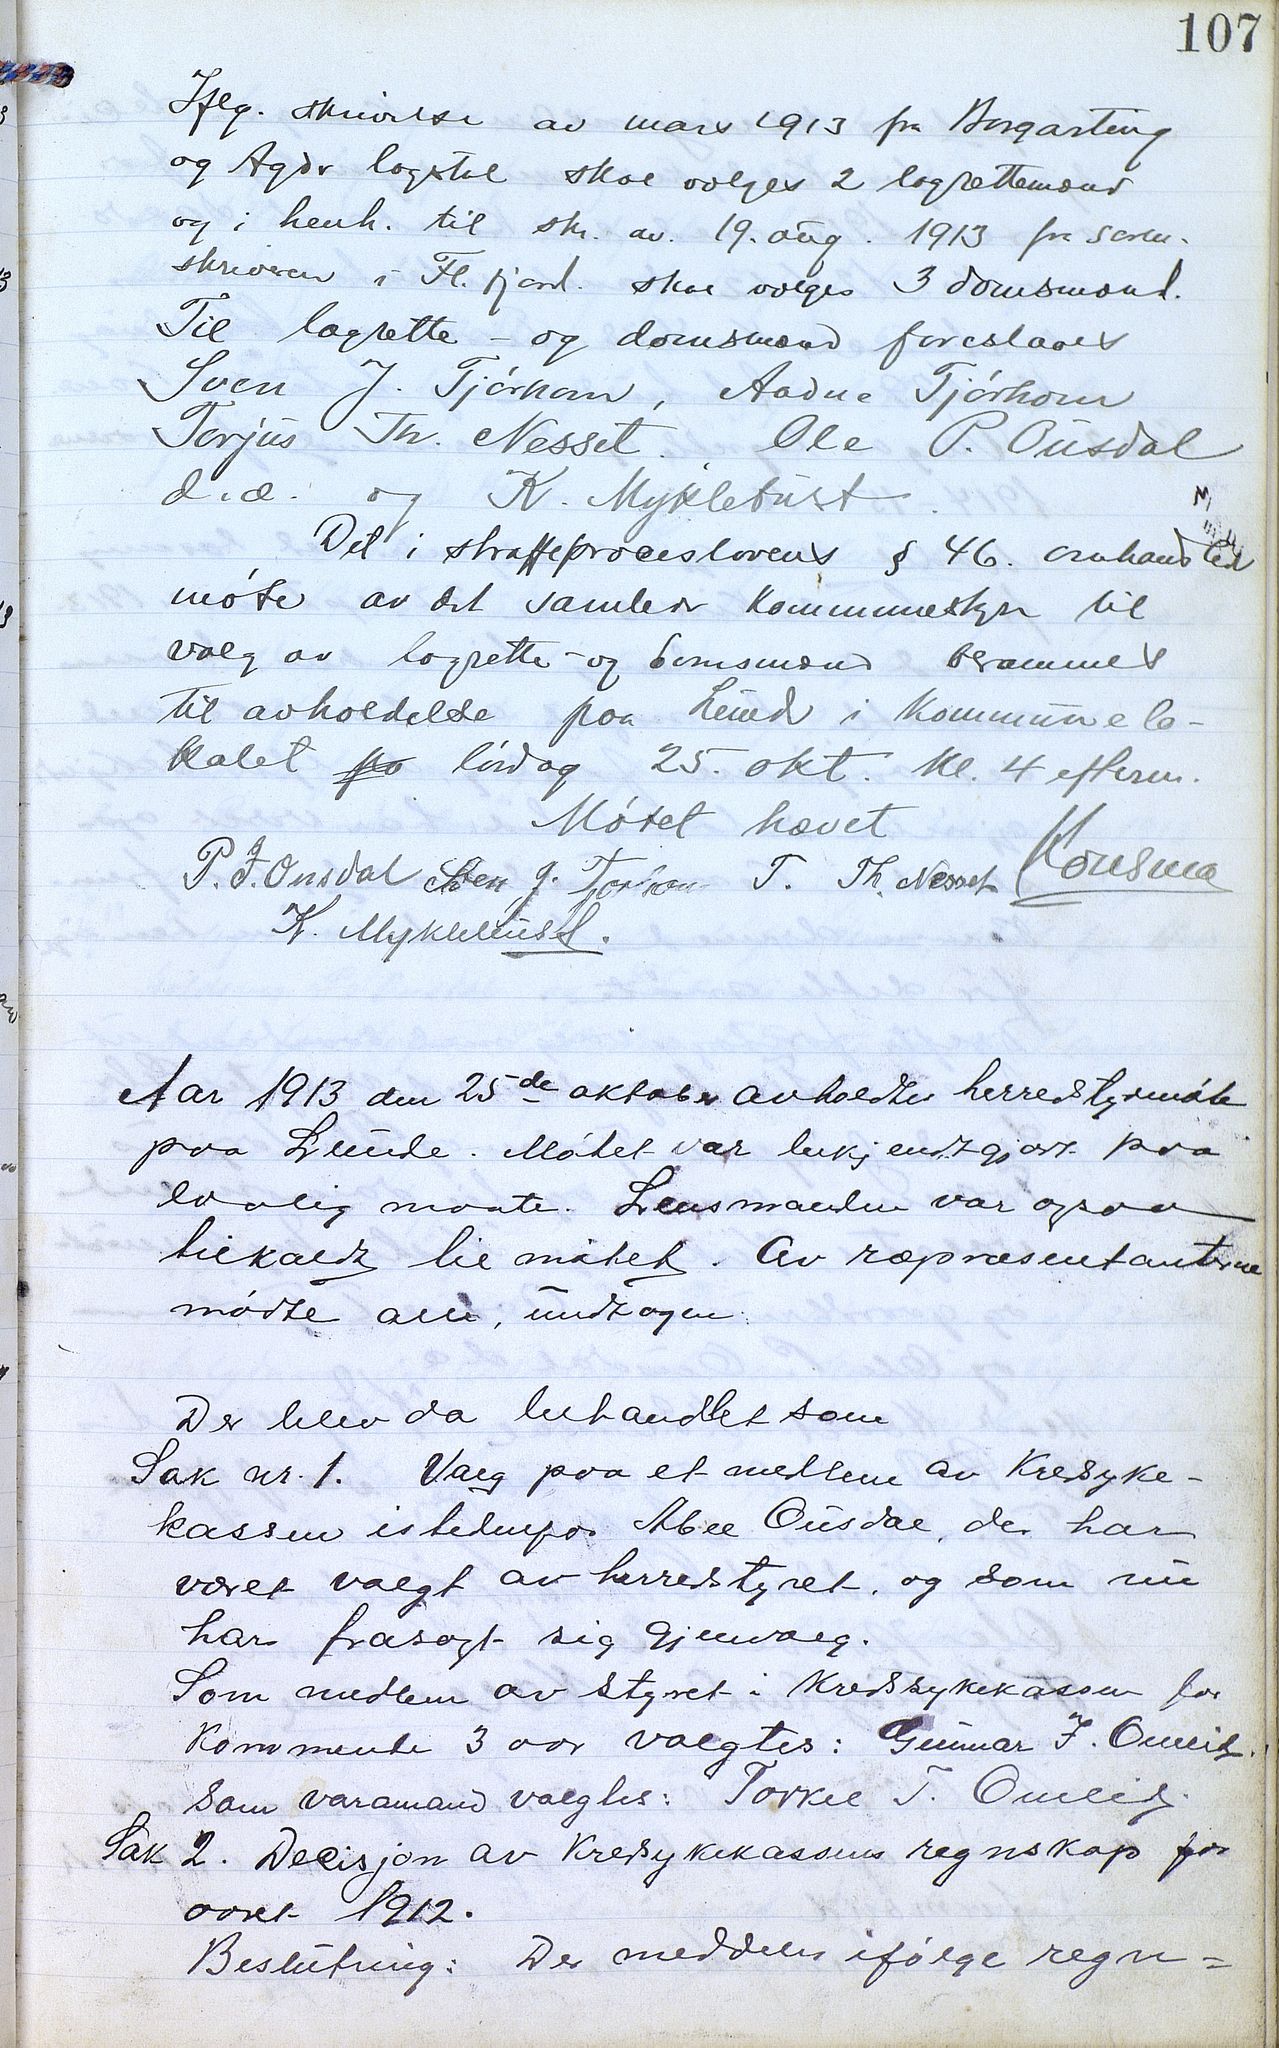 107
Iflg. skrivelse av mars 1913 fra Borgarting
og Agder lagstol skal vælges 2 lagrettemænd
og i henh. til skr. av. 19. aug. 1913 fra soren-
skriveren i Fl.fjord. skal vælges 3 domsmænd.
Til lagrette- og domsmænd foreslaaes
Sven J. Tjørhom, Aadne Tjørhom
Torjus Th. Nesset. Ole P. Ousdal
d.æ. og K. Myklebust.
Det i straffeproceslovens § 46. omhandlede
møte av det samlede kommunestyre til
valg av lagrette- og domsmænd berammes
til avholdelse paa Lunde i kommunelo-
kalet lørdag 25. okt. kl. 4 efterm.
Møtet hævet
P. J. Ousdal Sven J. Tjørhom T. Th. Nesset Konsmo
K. Myklebust.
Aar 1913 den 25de oktober avholdtes herredstyrmøte
paa Lunde. Møtet var bekjendtgjort paa
lovlig maate. Lensmanden var ogsaa
tilkaldt til møtet. Av repræsentanterne
mødte alle, undtagen
Der blev da behandlet som
Sak nr. 1. Valg paa et medlem av Kredsyke-
kassen istedenfor Abel Ousdal, der har
været valgt av herredstyret, og som nu
har frasagt sig gjenvalg.
Som medlem av styret i Kredssykekassen for
kommende 3 aar valgtes: Gunnar F. Omlid.
Som varamand valgtes: Torkel T. Omlid.
Sak 2. Decisjon av Kredsykekassens regnskap for
aaret 1912.
Beslutning: Der meddeles ifølge regn-